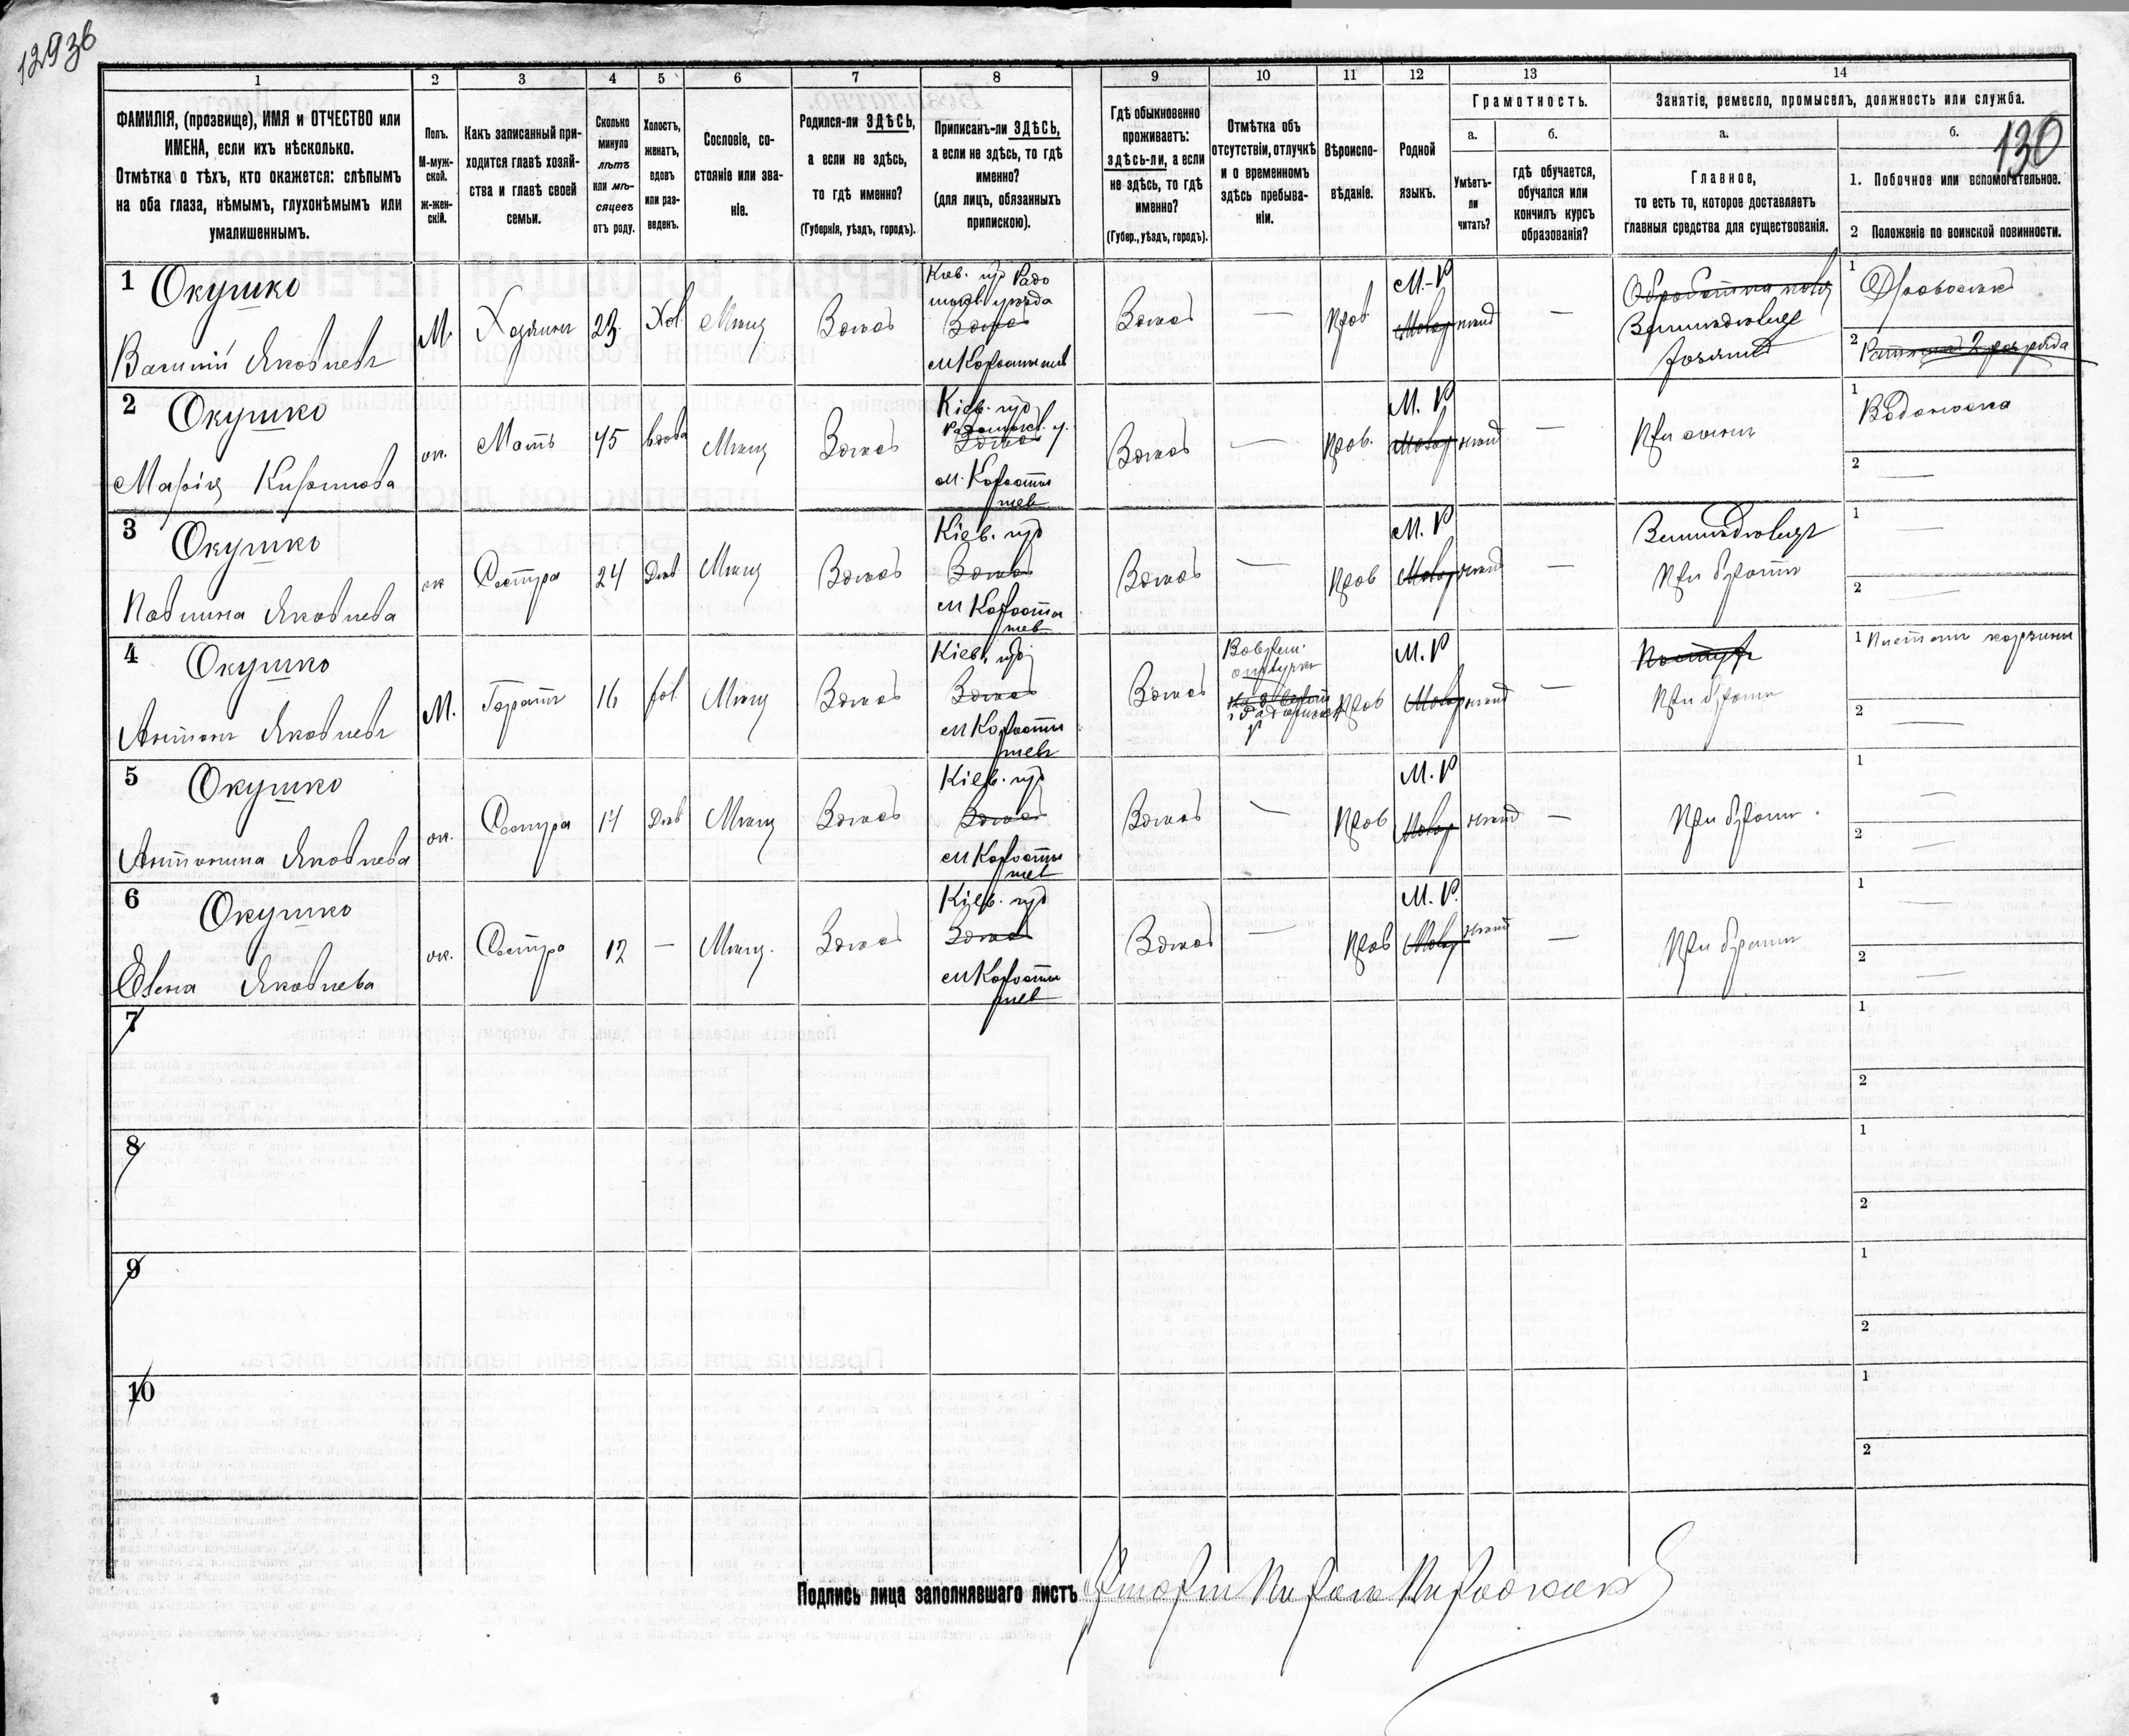 12936
130
1
2
3
4
5
6
7
8
9
10
11
12
13
14
ФАМИЛІЯ, (прозвище), ИМЯ и ОТЧЕСТВО или
ИМЕНА, если ихъ нѣсколько.
Отмѣтка о тѣхъ, кто окажется: слѣпымъ
на оба глаза, нѣмымъ, глухонѣмымъ или
умалишеннымъ.
Полъ.
М-муж-
ской.
ж-жен-
скій.
Какъ записанный при-
ходится главѣ хозяй-
ства и главѣ своей
семьи.
Сколько
минуло
лѣтъ
или мѣ-
сяцевъ
отъ роду.
Холостъ,
женатъ,
вдовъ
или раз-
веденъ.
Сословіе, со-
стояніе или зва-
ніе.
Родился-ли ЗДѢСЬ,
а если не здѣсь,
то гдѣ именно?
(Губернія, уѣздъ, городъ).
Приписанъ-ли ЗДѢСЬ,
а если не здѣсь, то гдѣ
именно?
(для лицъ, обязанныхъ
припискою).
Гдѣ обыкновенно
проживаетъ:
здѣсь-ли, а если
не здѣсь, то гдѣ
именно?
(Губер., уѣздъ, городъ).
Отмѣтка объ
отсутствіи, отлучкѣ
и о временномъ
здѣсь пребыва-
ніи.
Вѣроиспо-
вѣданіе.
Родной
языкъ.
Грамотность.
а.
Умѣетъ-
ли
читать?
б.
гдѣ обучается,
обучался или
кончилъ курсъ
образованія?
Занятіе, ремесло, промыселъ, должность или служба.
а.
Главное,
то есть то, которое доставляетъ
главныя средства для существованія.
б.
1. Побочное или вспомогательное.
2 Положеніе по воинской повинности.
1 Окушко
М. Хозяинъ 23. Хол. Мѣщ Здѣсь
Кіев. губ Радо
мысл. уѣзда
Здѣсь
м Коростышев
Здѣсь Прав М.-Р —
Земледѣлецъ
хозяинъ
1
2
2 разряда
2 Окушко
Марія
ж. Мать 45 вдова Мѣщ Здѣсь
Кіев. губ
Радомысл. у.
Здѣсь
м. Коросты
шев
Здѣсь — Прав. М. Р —
При сынѣ
1
2 —
3 Окушко
Павлина Яковлева
ж Сестра 24 Дѣв Мѣщ Здѣсь
Кіев. губ
Здѣсь
м Коросты
шев
Здѣсь — Прав М. Р —
Земледѣлецъ
При братѣ
1 —
2 —
4 Окушко
Антонъ Яковлевъ
М. Братъ 16 хол Мѣщ Здѣсь
Кіев. губ
Здѣсь
м Коросты
шевъ
Здѣсь Прав М. Р —
При братѣ
1 корзины
2 —
5 Окушко
Антонина Яковлева
ж. Сестра 14 Дѣв Мѣщ Здѣсь
Кіев. губ
Здѣсь
м Коросты
шев
Здѣсь — Прав М. Р —
При братѣ.
1 —
2 —
6 Окушко
Елена Яковлева
ж. Сестра 12 — Мѣщ. Здѣсь
Кіев. губ
Здѣсь
м Коросты
шев
Здѣсь — Прав М. Р. —
При братѣ
1 —
2 —
7
1
2
8
1
2
9
1
2
10
1
2
Подпись лица заполнявшаго листъ